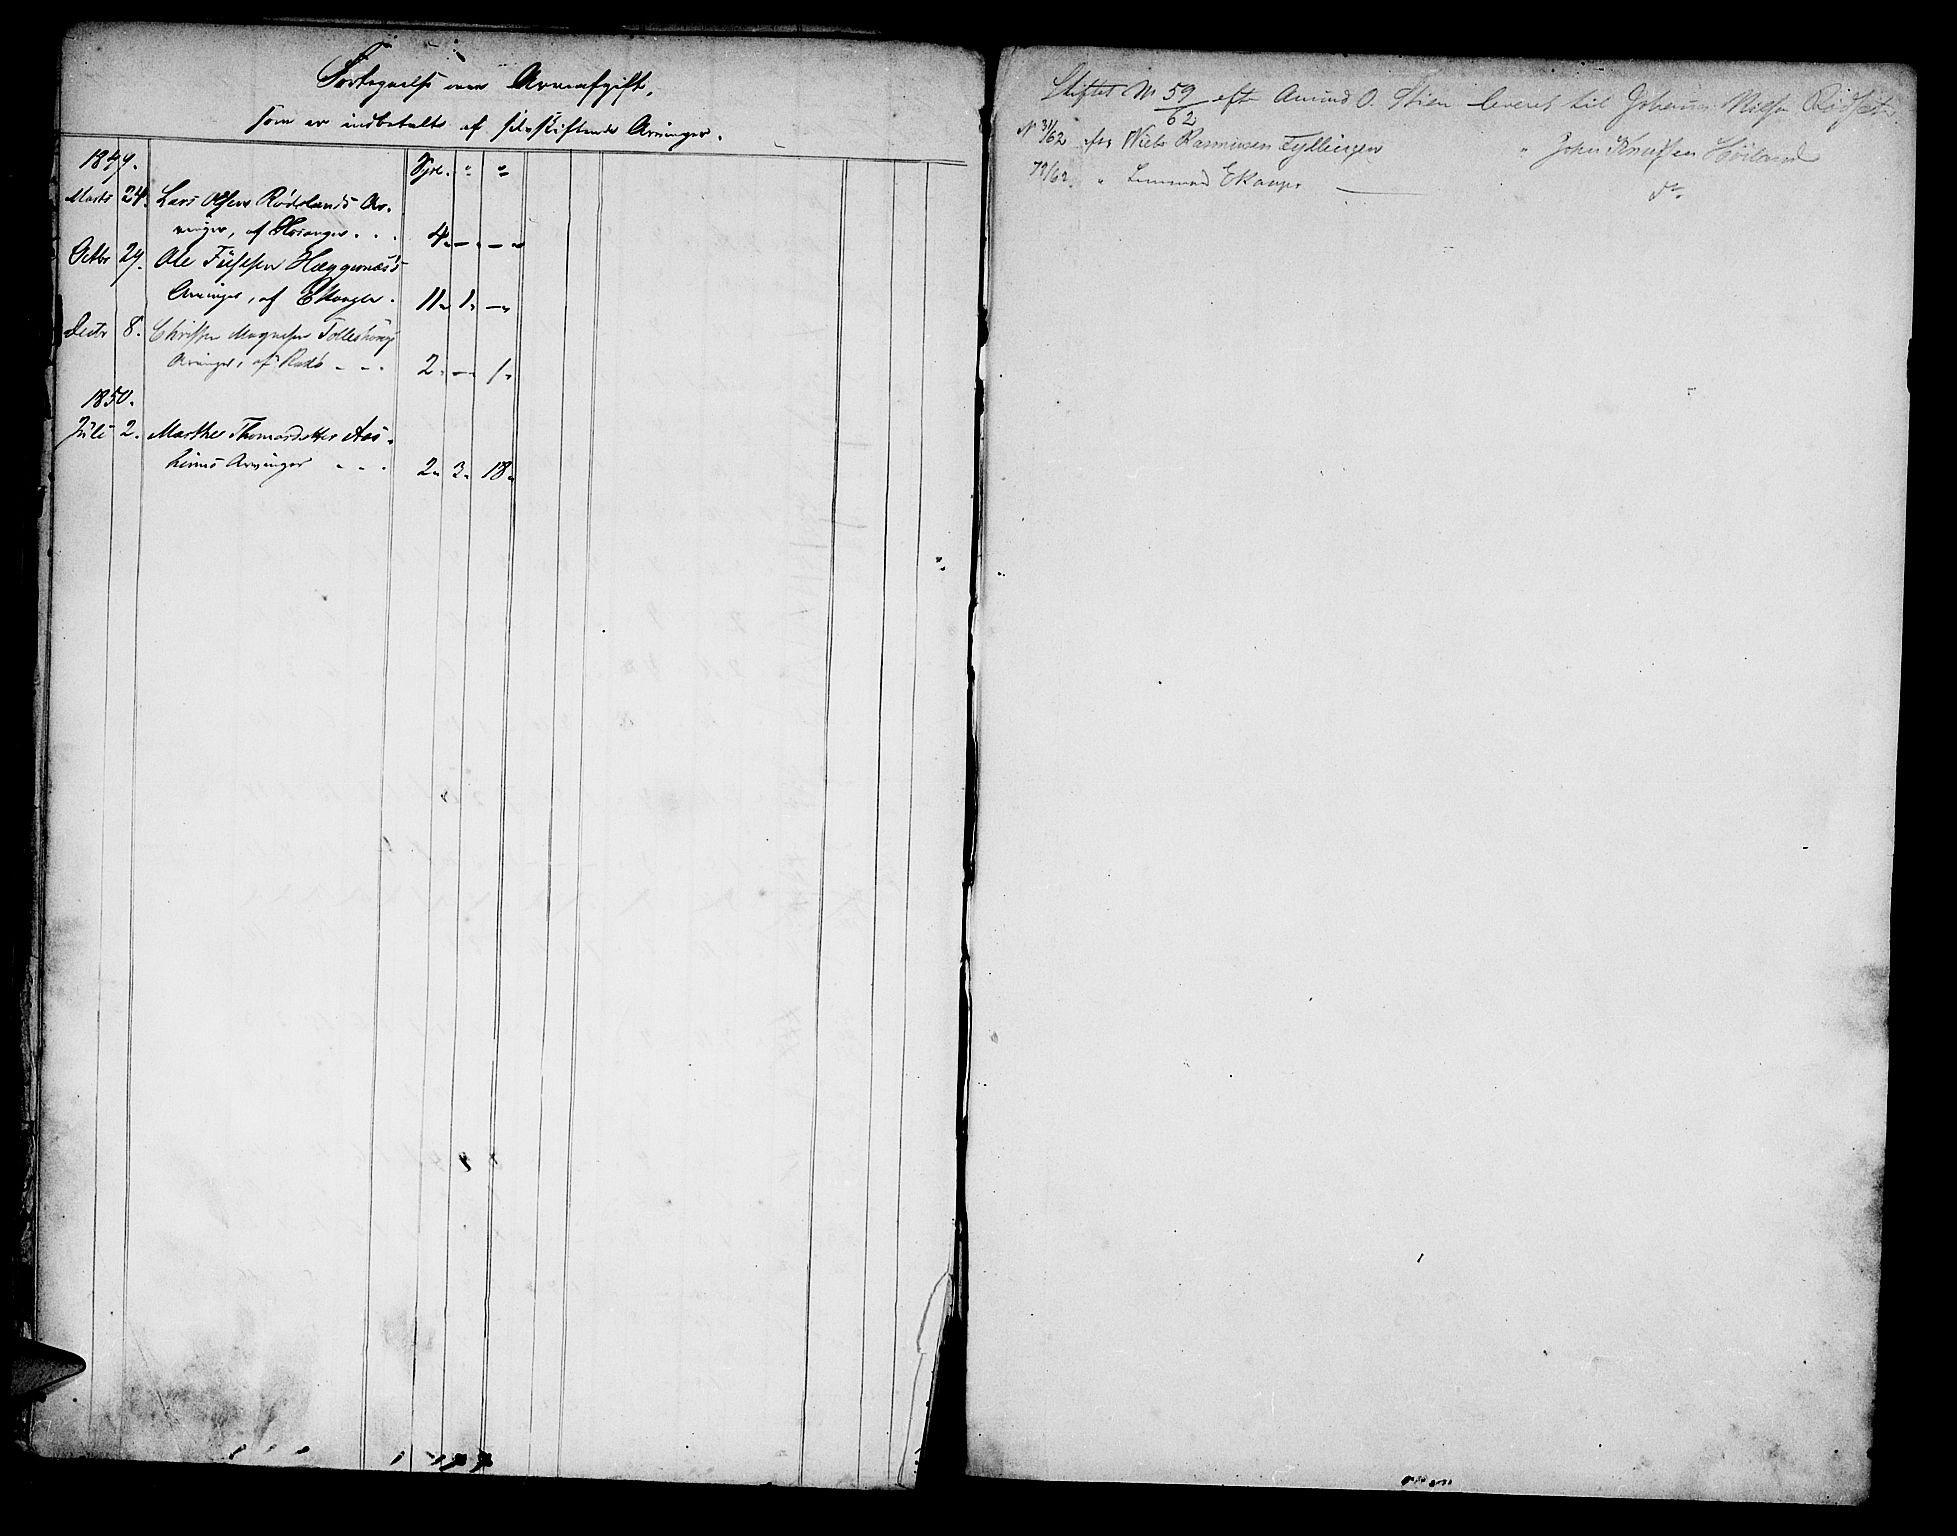 Fortegnelse over Arveafgift,
som er indbetalt af selvskiftende Arvinger.
1849. Spd. " "
Marts 24. Lars Olsen Rødslands Ar-
vinger, af Hosanger . . . 4. —. —.
Octbr 29. Ole Hæggernæs's
Arvinger, af Ekanger . 11. 1. —.
Decbr 8. Christen Magnesen
Arvinger, af Radø . . . 2. —. 1.
1850.
Juli 2. Marthe Thomasdatter Aas-
heims Arvinger . . . 2. 3. 18.
Skiftet No 59/62 efter Amund O. Stien leveret til Johannes Nilsen
No 31/62 efter Niels Rasmussen Fyllingen " John Knudsen Høiland
79/62 " Ekanger — do